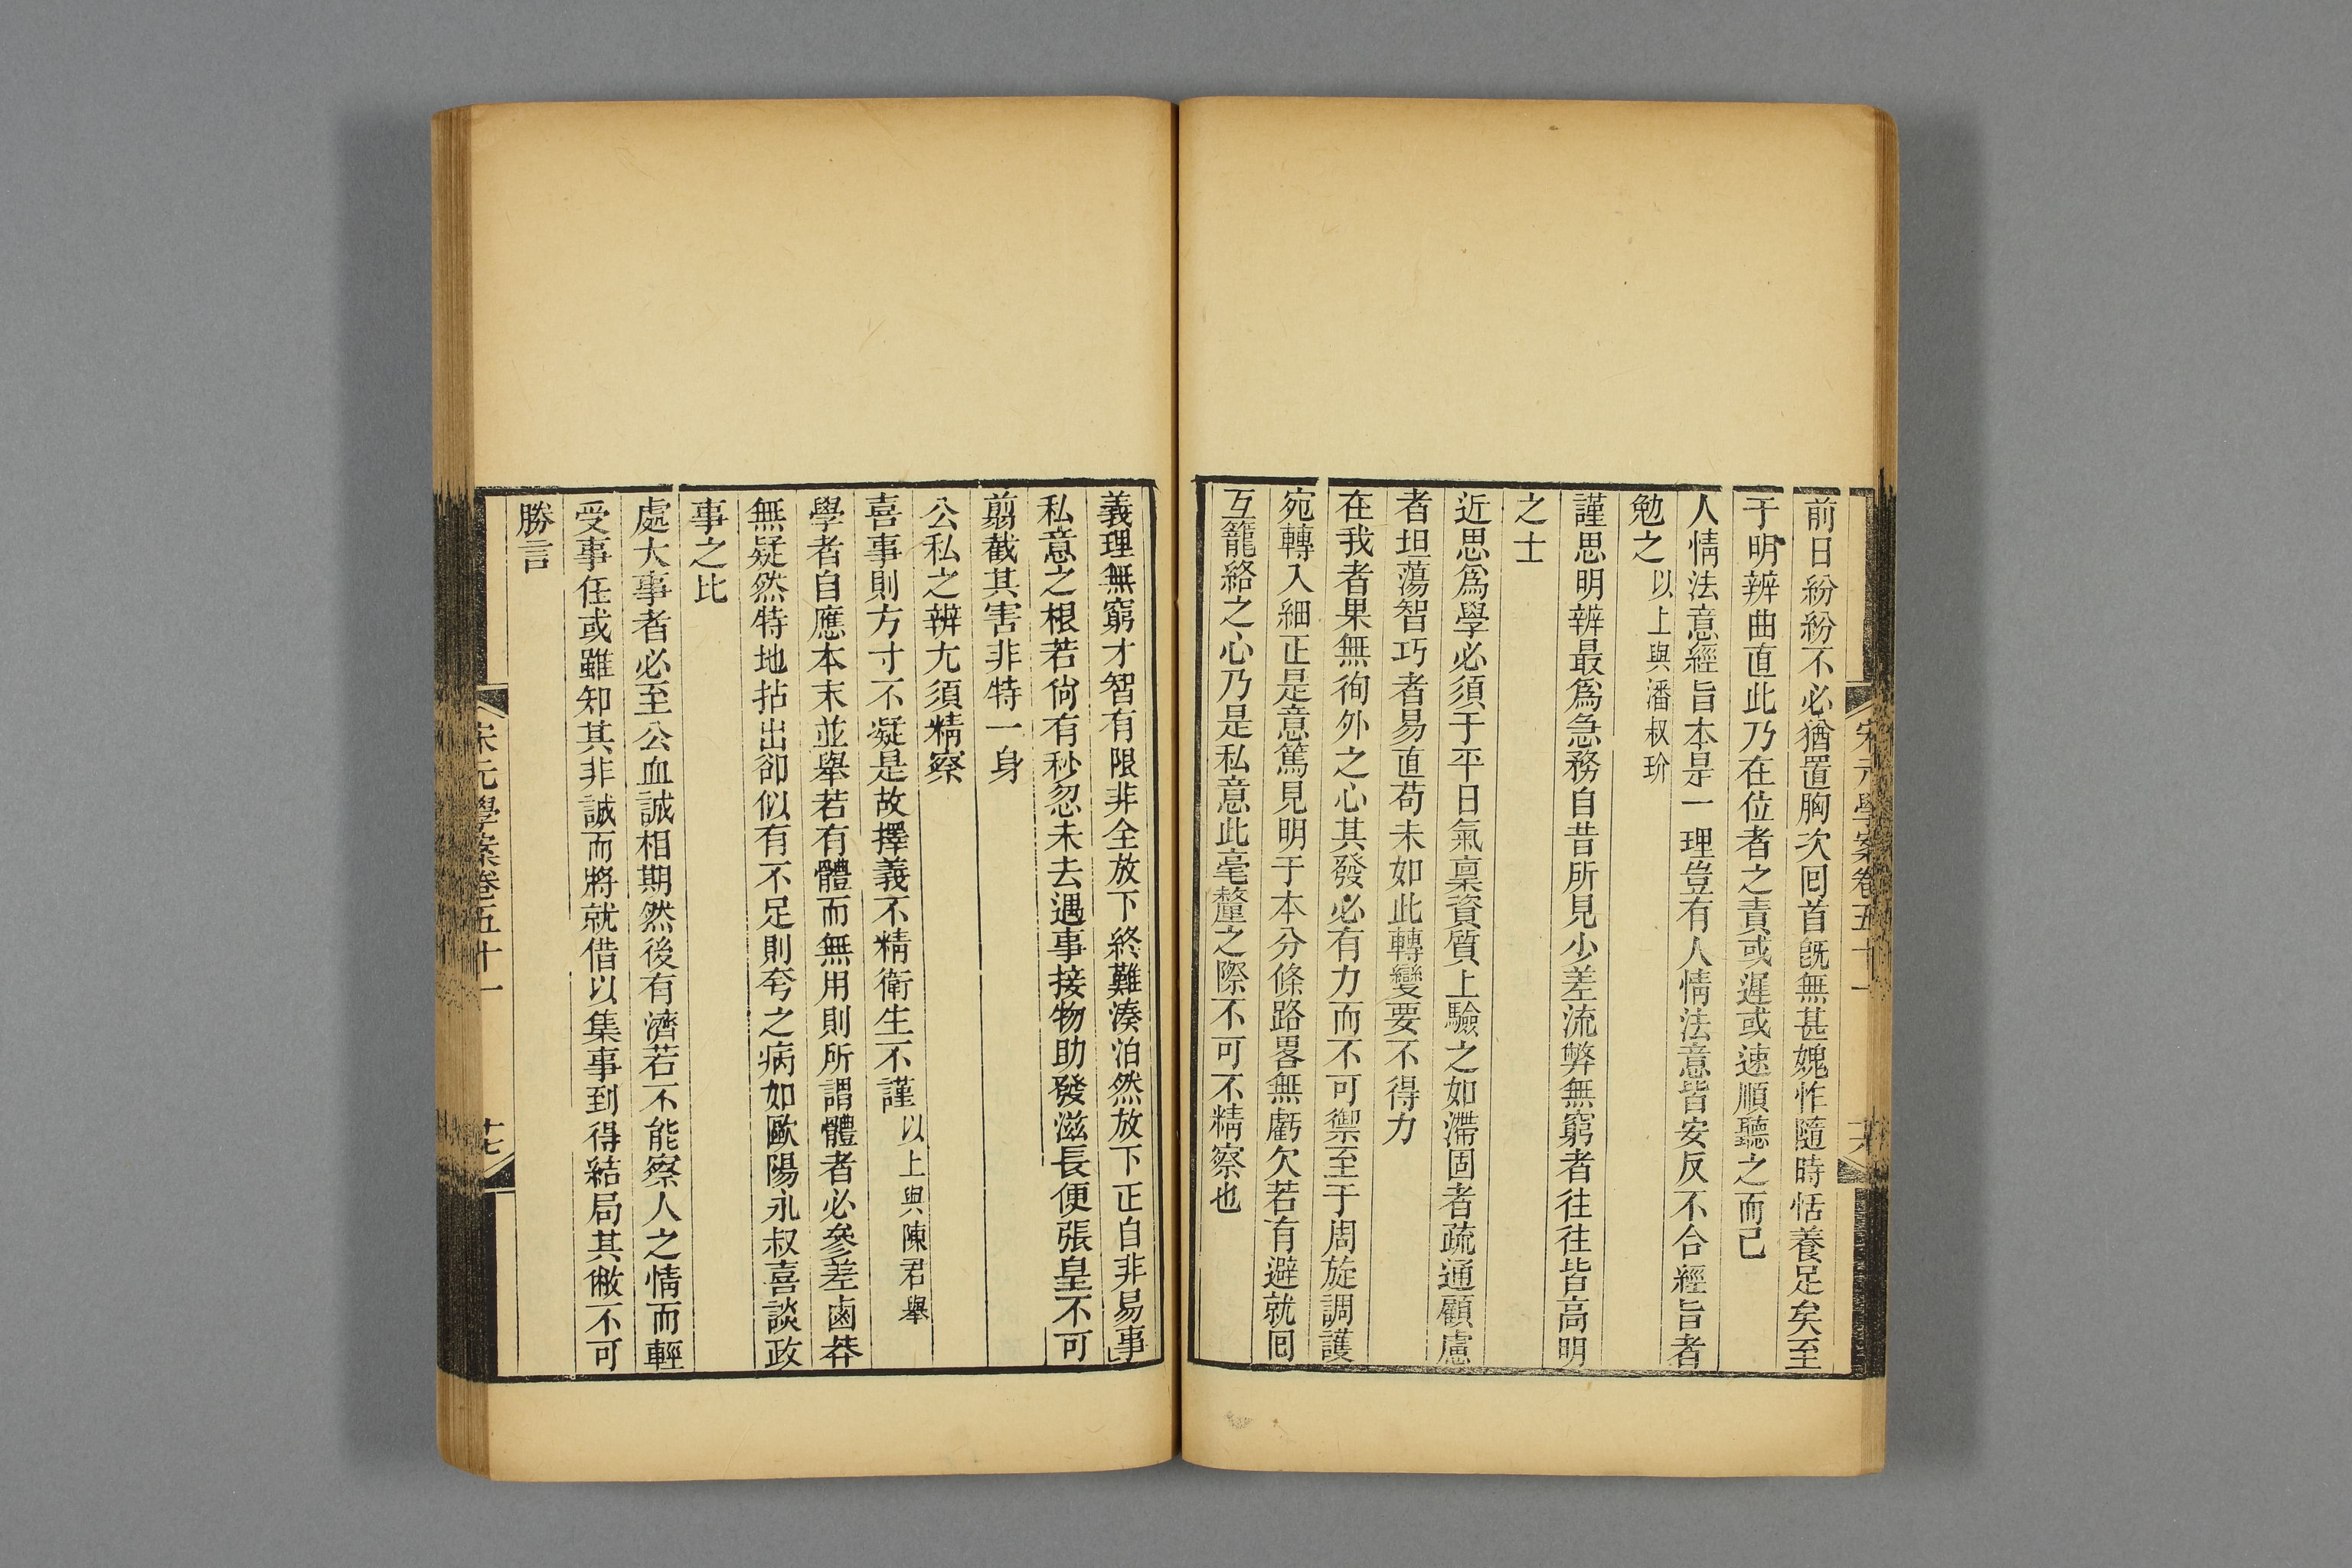 宋元學案卷五十一
前日紛紛不必猶置胸次回首旣無甚媿怍隨時恬養足矣至
于明辨曲直此乃在位者之責或遲或速順聽之而已
人情法意經旨本是一理豈有人情法意皆安反不合經旨者
勉之以上與潘叔玠
謹思明辨最爲急務自昔所見少差流弊無窮者往往皆高明
之士
近思爲學必須于平日氣稟資質上驗之如滯固者疏通顧慮
者坦蕩智巧者易直苟未如此轉變要不得力
在我者果無徇外之心其發必有力而不可禦至于周旋調護
宛轉入細正是意篤見明于本分條路畧無虧欠若有避就回
互籠絡之心乃是私意此毫釐之際不可不精察也
義理無窮才智有限非全放下終難湊泊然放下正自非易事
私意之根若尙有秒忽未去遇事接物助發滋長便張皇不可
翦截其害非特一身
公私之辨尢須精察
喜事則方寸不凝是故擇義不精衛生不謹以上與陳君舉
學者自應本末並舉若有體而無用則所謂體者必參差鹵莽
無疑然特地拈出卻似有不足則夸之病如歐陽永叔喜談政
事之比
處大事者必至公血誠相期然後有濟若不能察人之情而輕
受事任或雖知其非誠而將就借以集事到得結局其敝不可
勝言
宋元學案卷五十一